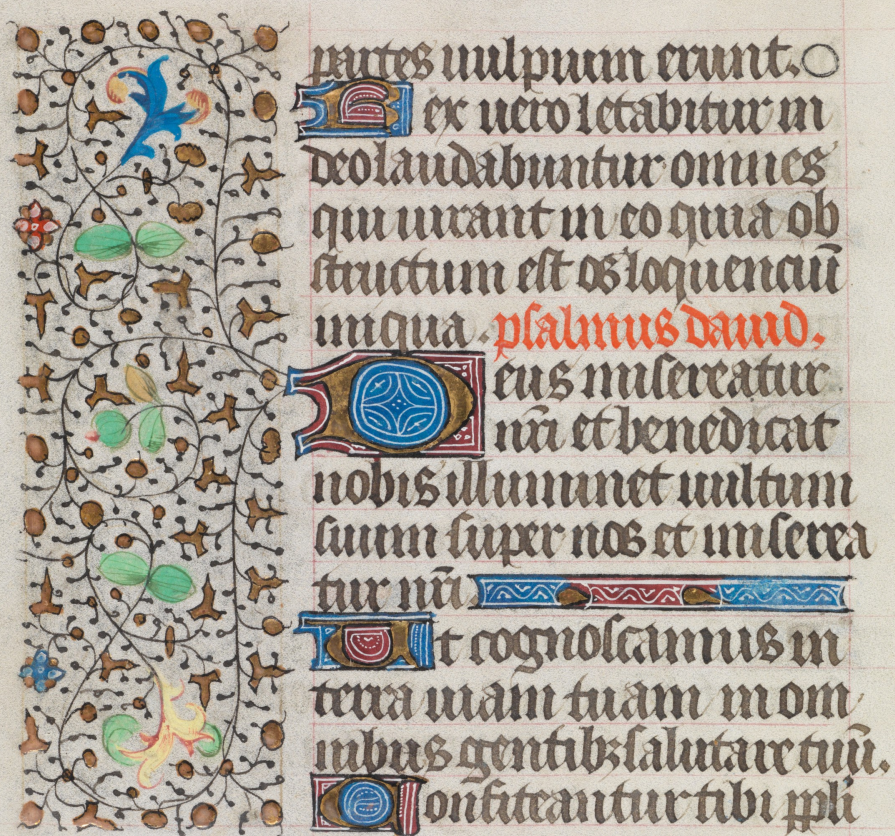 partes uulpium erunt.
Rex uero letabitur in
deo laudabuntur omnes
qui iurant in eo quia ob
structum est os loquenciũ
iniqua. psalmus dauid.
Deus misereatur
nr̃i et benedicat
nobis illuminet uultum
suum super nos et miserea
tur nr̃i
Ut cognoscamus in
terra uiam tuam in om
nibus gentibꝫ salutare tuũ.
Confiteantur tibi pp̃li